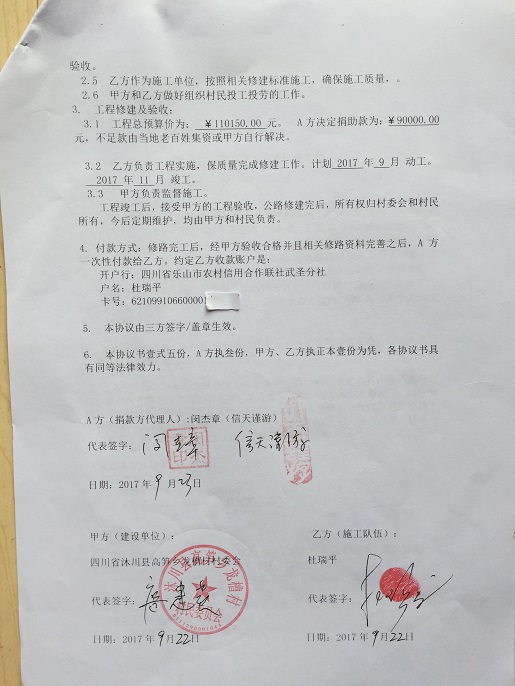 验收。
2.5 乙方作为施工单位，按照相关修建标准施工，确保施工质量，。
2.6 甲方和乙方做好组织村民投工投劳的工作。
3. 工程修建及验收：
3.1 工程总预算价为： ￥110150.00 元。 A 方决定捐助款为：￥90000.00
元，不足款由当地老百姓集资或甲方自行解决。
3.2 乙方负责工程实施，保质量完成修建工作。计划 2017 年 9 月 动工。
2017 年 11 月 竣工。
3.3 甲方负责监督施工。
工程竣工后，接受甲方的工程验收，公路修建完后，所有权归村委会和村民
所有，今后定期维护，均由甲方和村民负责。
4. 付款方式：修路完工后，经甲方验收合格并且相关修路资料完善之后，A 方
一次性付款给乙方。约定乙方收款账户是：
开户行：四川省乐山市农村信用合作联社武圣分社
户名：杜瑞平
卡号：6210991066000001
5. 本协议由三方签字/盖章生效。
6. 本协议书壹式五份，A 方执叁份，甲方、乙方执正本壹份为凭，各协议书具
有同等法律效力。
A 方（捐款方代理人）:闵杰章（信天谨游）
代表签字： 闵杰章 信天谨游
日期：2017 年 9 月 23 日
甲方（建设单位）：
四川省沐川县高笋乡龙槽村村委会
代表签字：
日期：2017 年 9 月 22 日
乙方（施工队伍）：
杜瑞平
代表签字：
日期：2017 年 9 月 22 日
沐川县高笋乡龙槽村